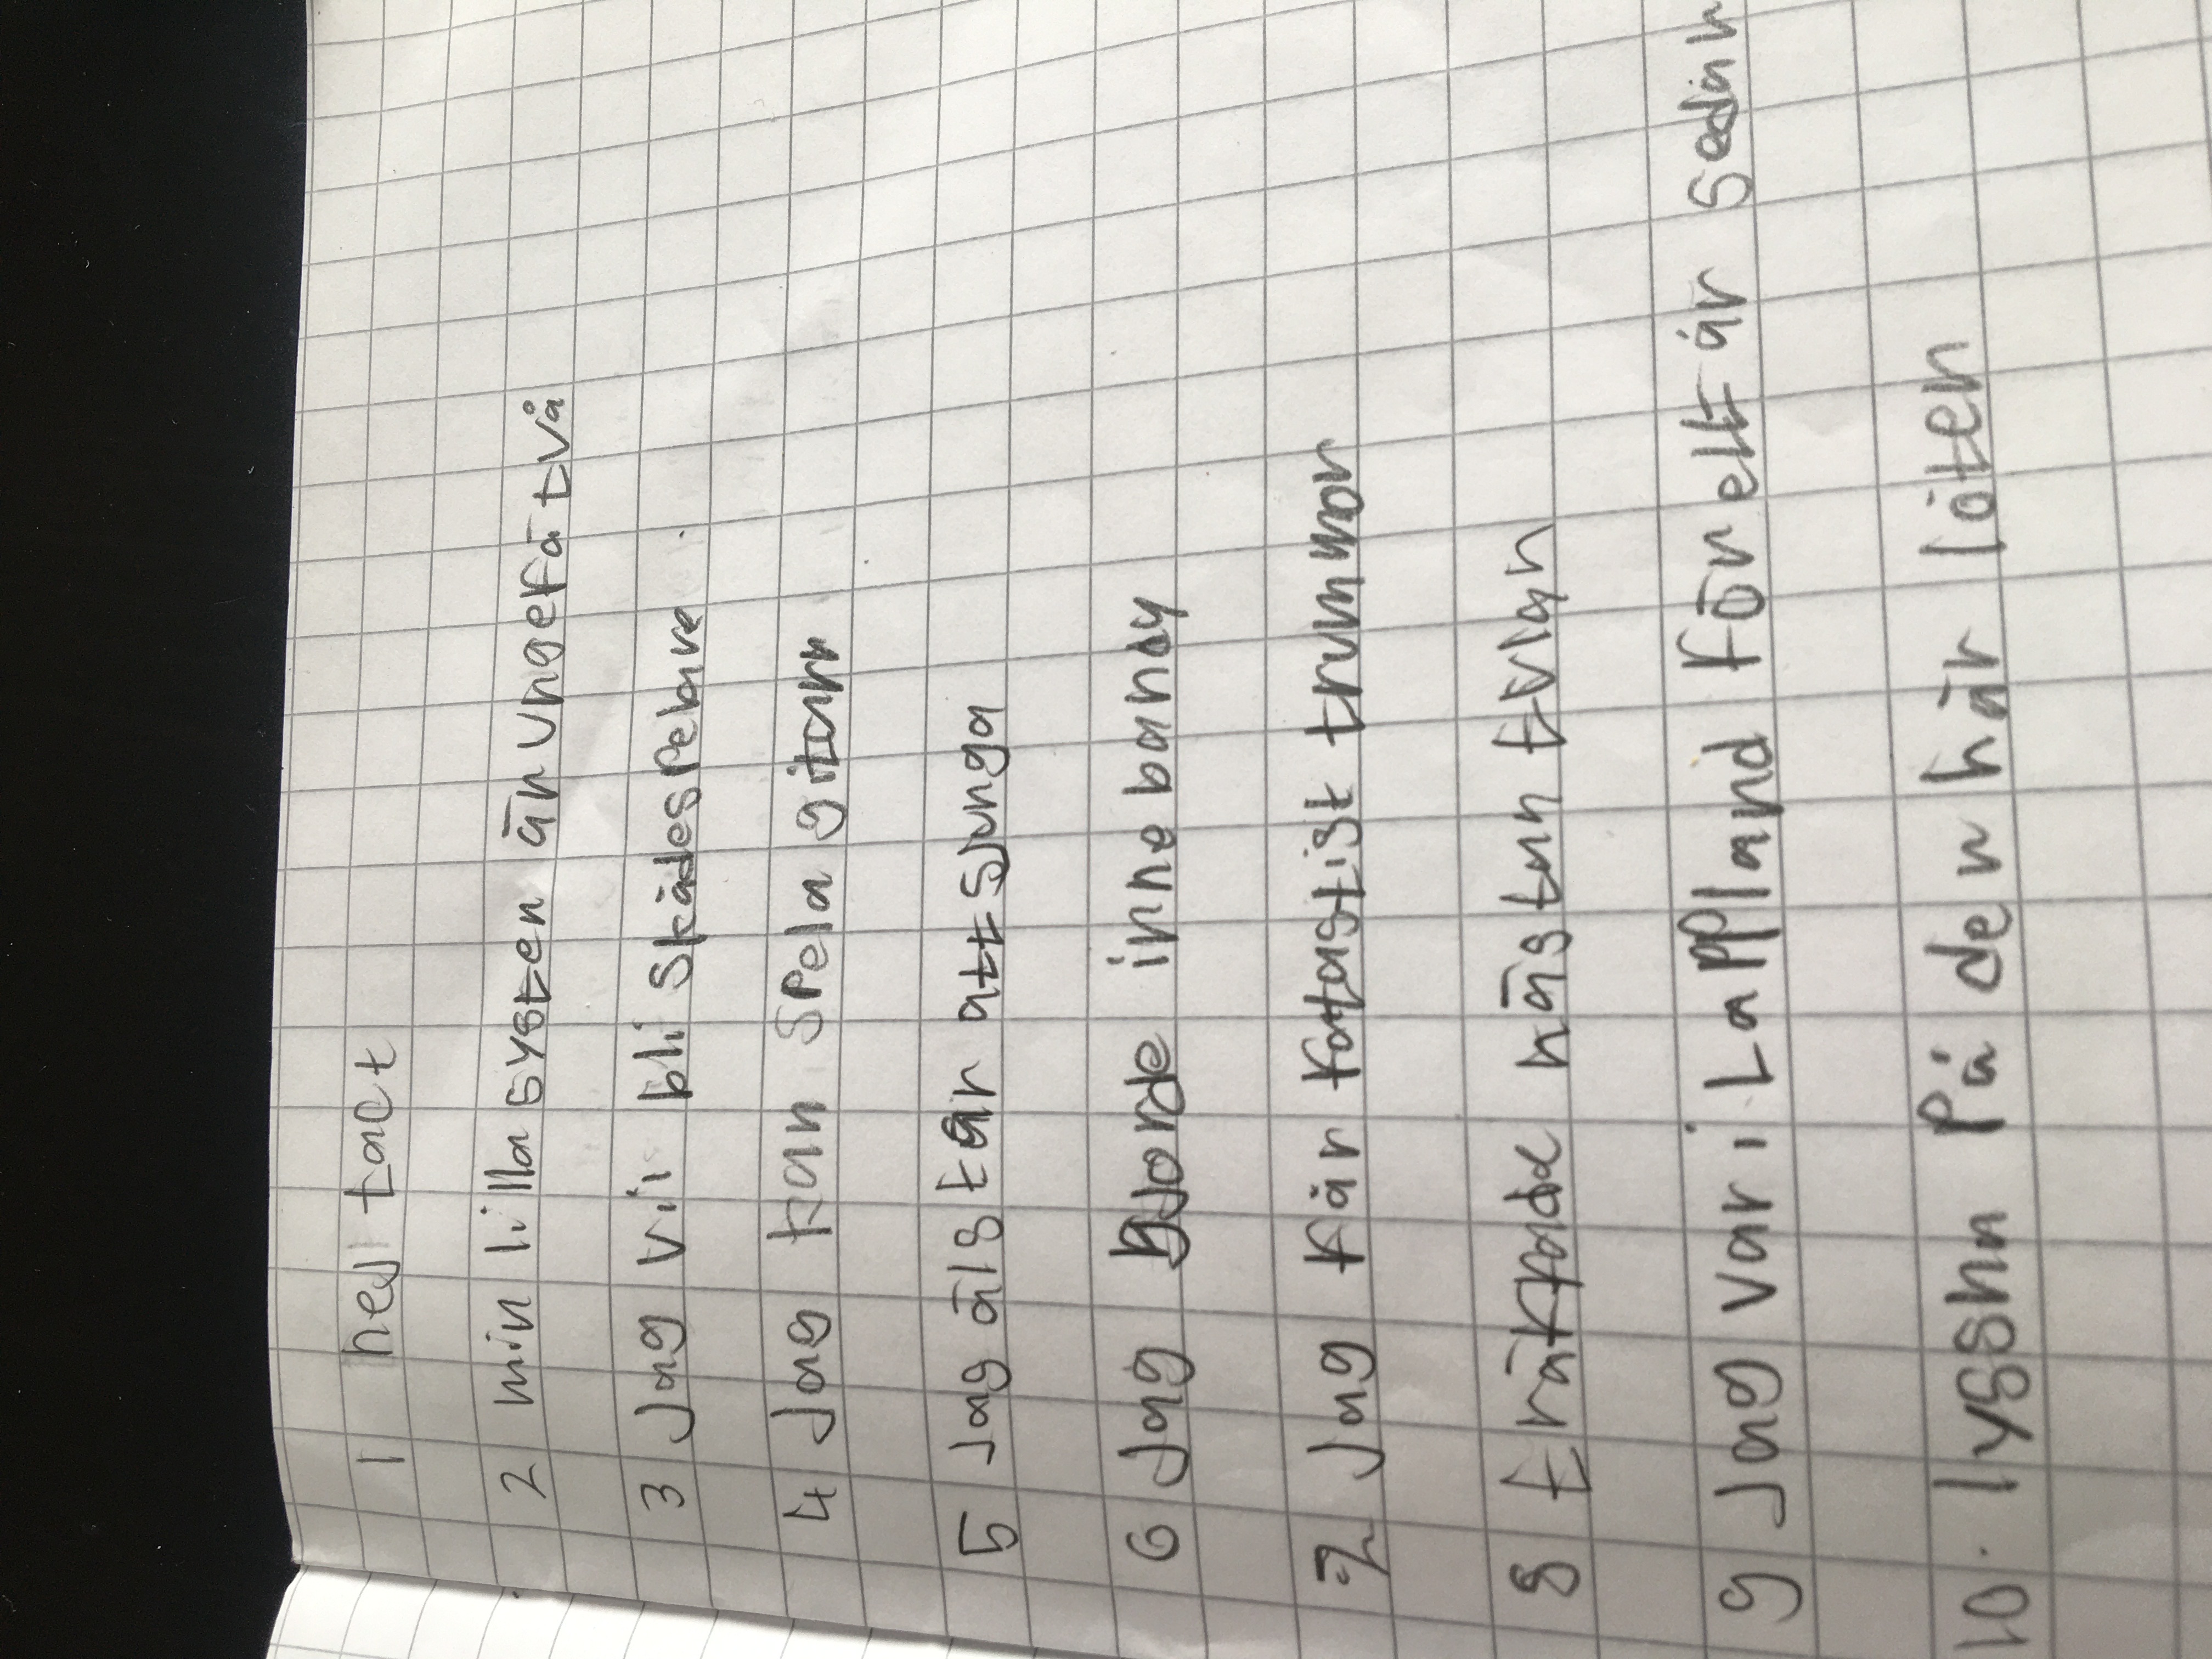 1 nej tact
2 min lilla systen än ungefä två
3 Jag vil bli skådespelare
4 Jag kan spela gitarr
5 Jag älstår att sjunga
6 Jag gjorde innebandy
7 Jag får fatastist trummor
8 Eräkfade nästan tvlan
9 Jag var i Lappland för ett år sedan
10. lyssna på den här låten